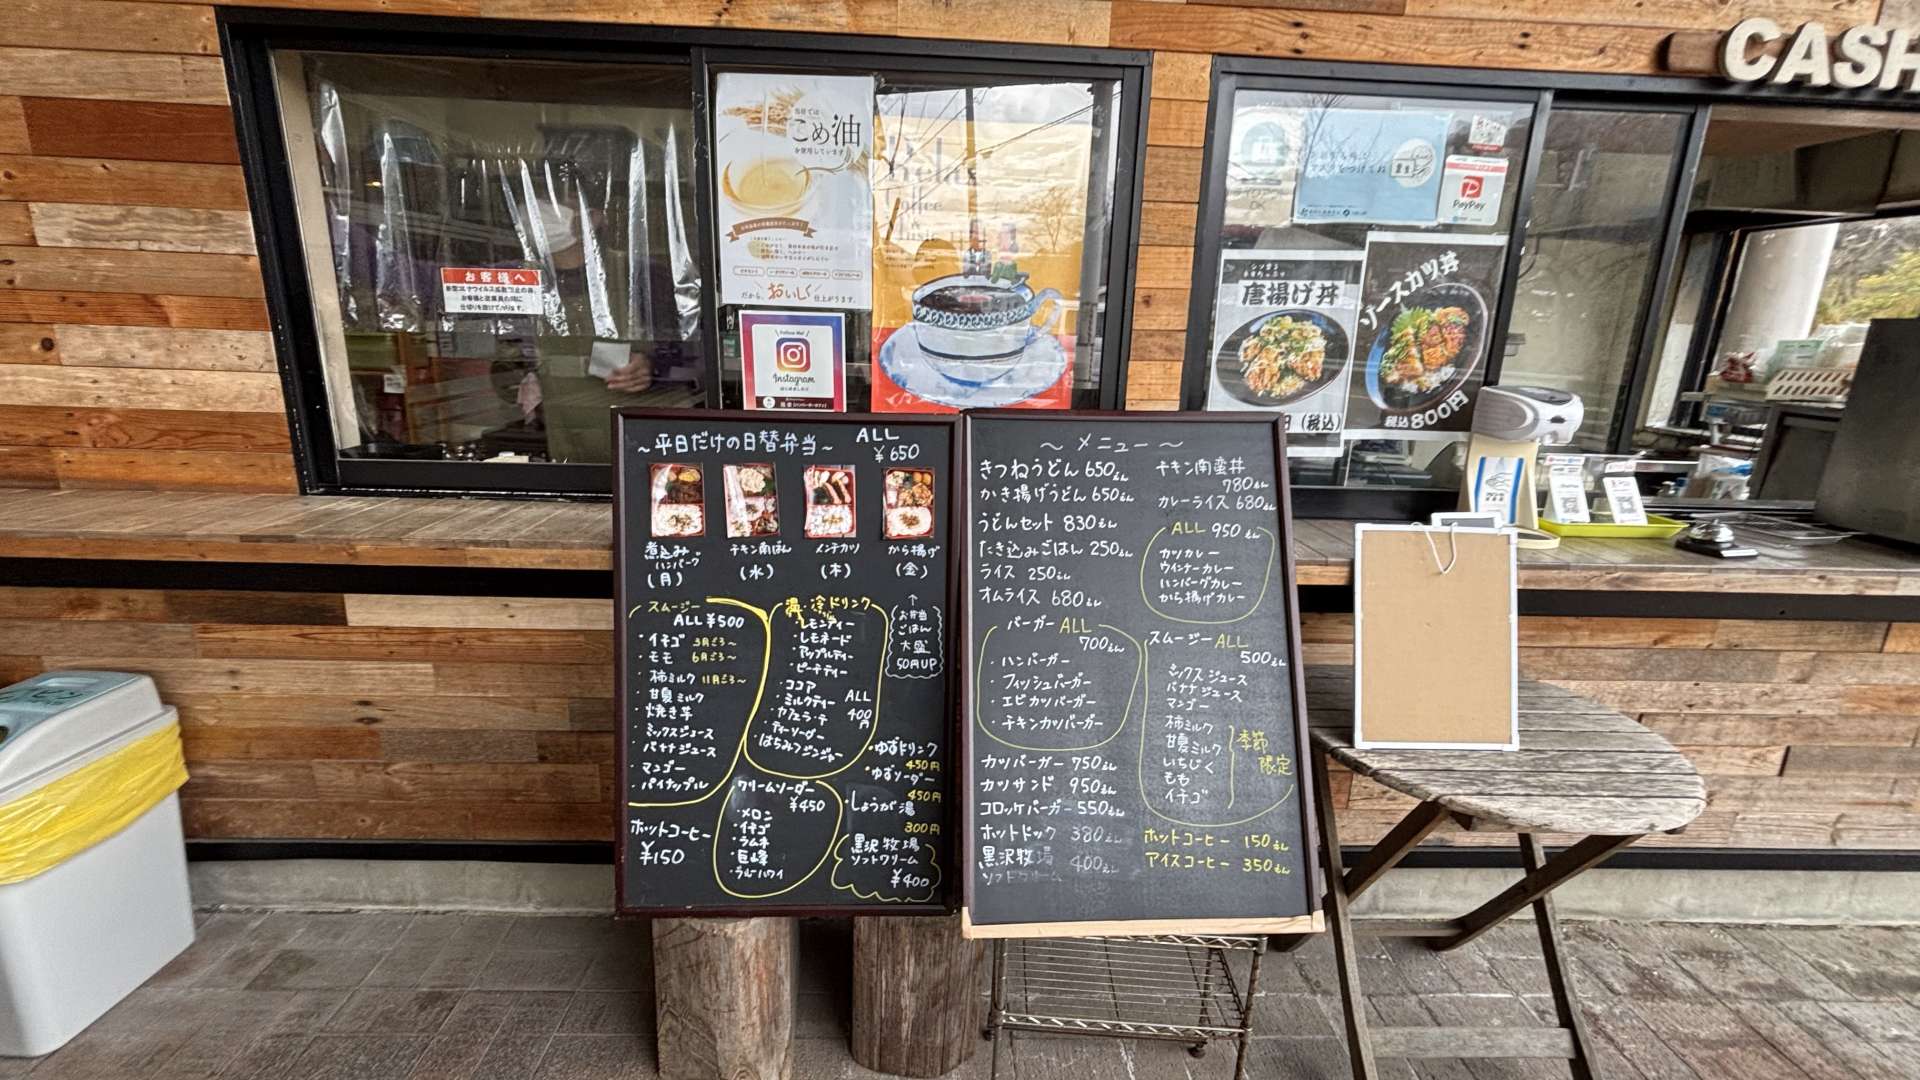 CASH
当店では
こめ油
を使用しています
だから、おいしく仕上がります。
Relax
Coffee
Music
お客様へ
Follow Me!
Instagram
PayPay
唐揚げ丼
(税込)
ソースカツ丼
税込800円
～平日だけの日替弁当～
ALL
¥650
煮込み
ハンバーグ
(月)
チキン南ばん
(水)
メンチカツ
(木)
から揚げ
(金)
↑
お弁当
ごはん
大盛
50円UP
スムージー
ALL ¥500
・イチゴ 3月ごろ～
・モモ 6月ごろ～
・柿ミルク 11月ごろ～
・甘夏ミルク
・焼き芋
・ミックスジュース
・バナナジュース
・マンゴー
・パイナップル
ホットコーヒー
¥150
温・冷ドリンク
・レモンティー
・レモネード
・アップルティー
・ピーチティー
・ココア
・ミルクティー
・カフェラテ
・ティーソーダー
・はちみつジンジャー
ALL
400円
クリームソーダー
¥450
・メロン
・イチゴ
・ラムネ
・巨峰
・ブルーハワイ
・ゆずドリンク
450円
・ゆずソーダー
450円
・しょうが湯
300円
黒沢牧場
ソフトクリーム
¥400
～ メニュー ～
きつねうどん 650えん
かき揚げうどん 650えん
うどんセット 830えん
たき込みごはん 250えん
ライス 250えん
オムライス 680えん
バーガー ALL
700えん
・ハンバーガー
・フィッシュバーガー
・エビカツバーガー
・チキンカツバーガー
カツバーガー 750えん
カツサンド 950えん
コロッケバーガー 550えん
ホットドック 380えん
黒沢牧場 400えん
ソフトクリーム
チキン南蛮丼
780えん
カレーライス 680えん
ALL 950えん
カツカレー
ウインナーカレー
ハンバーグカレー
から揚げカレー
スムージー ALL
500えん
ミックスジュース
バナナジュース
マンゴー
柿ミルク
甘夏ミルク
いちじく
もも
イチゴ
季節
限定
ホットコーヒー 150えん
アイスコーヒー 350えん